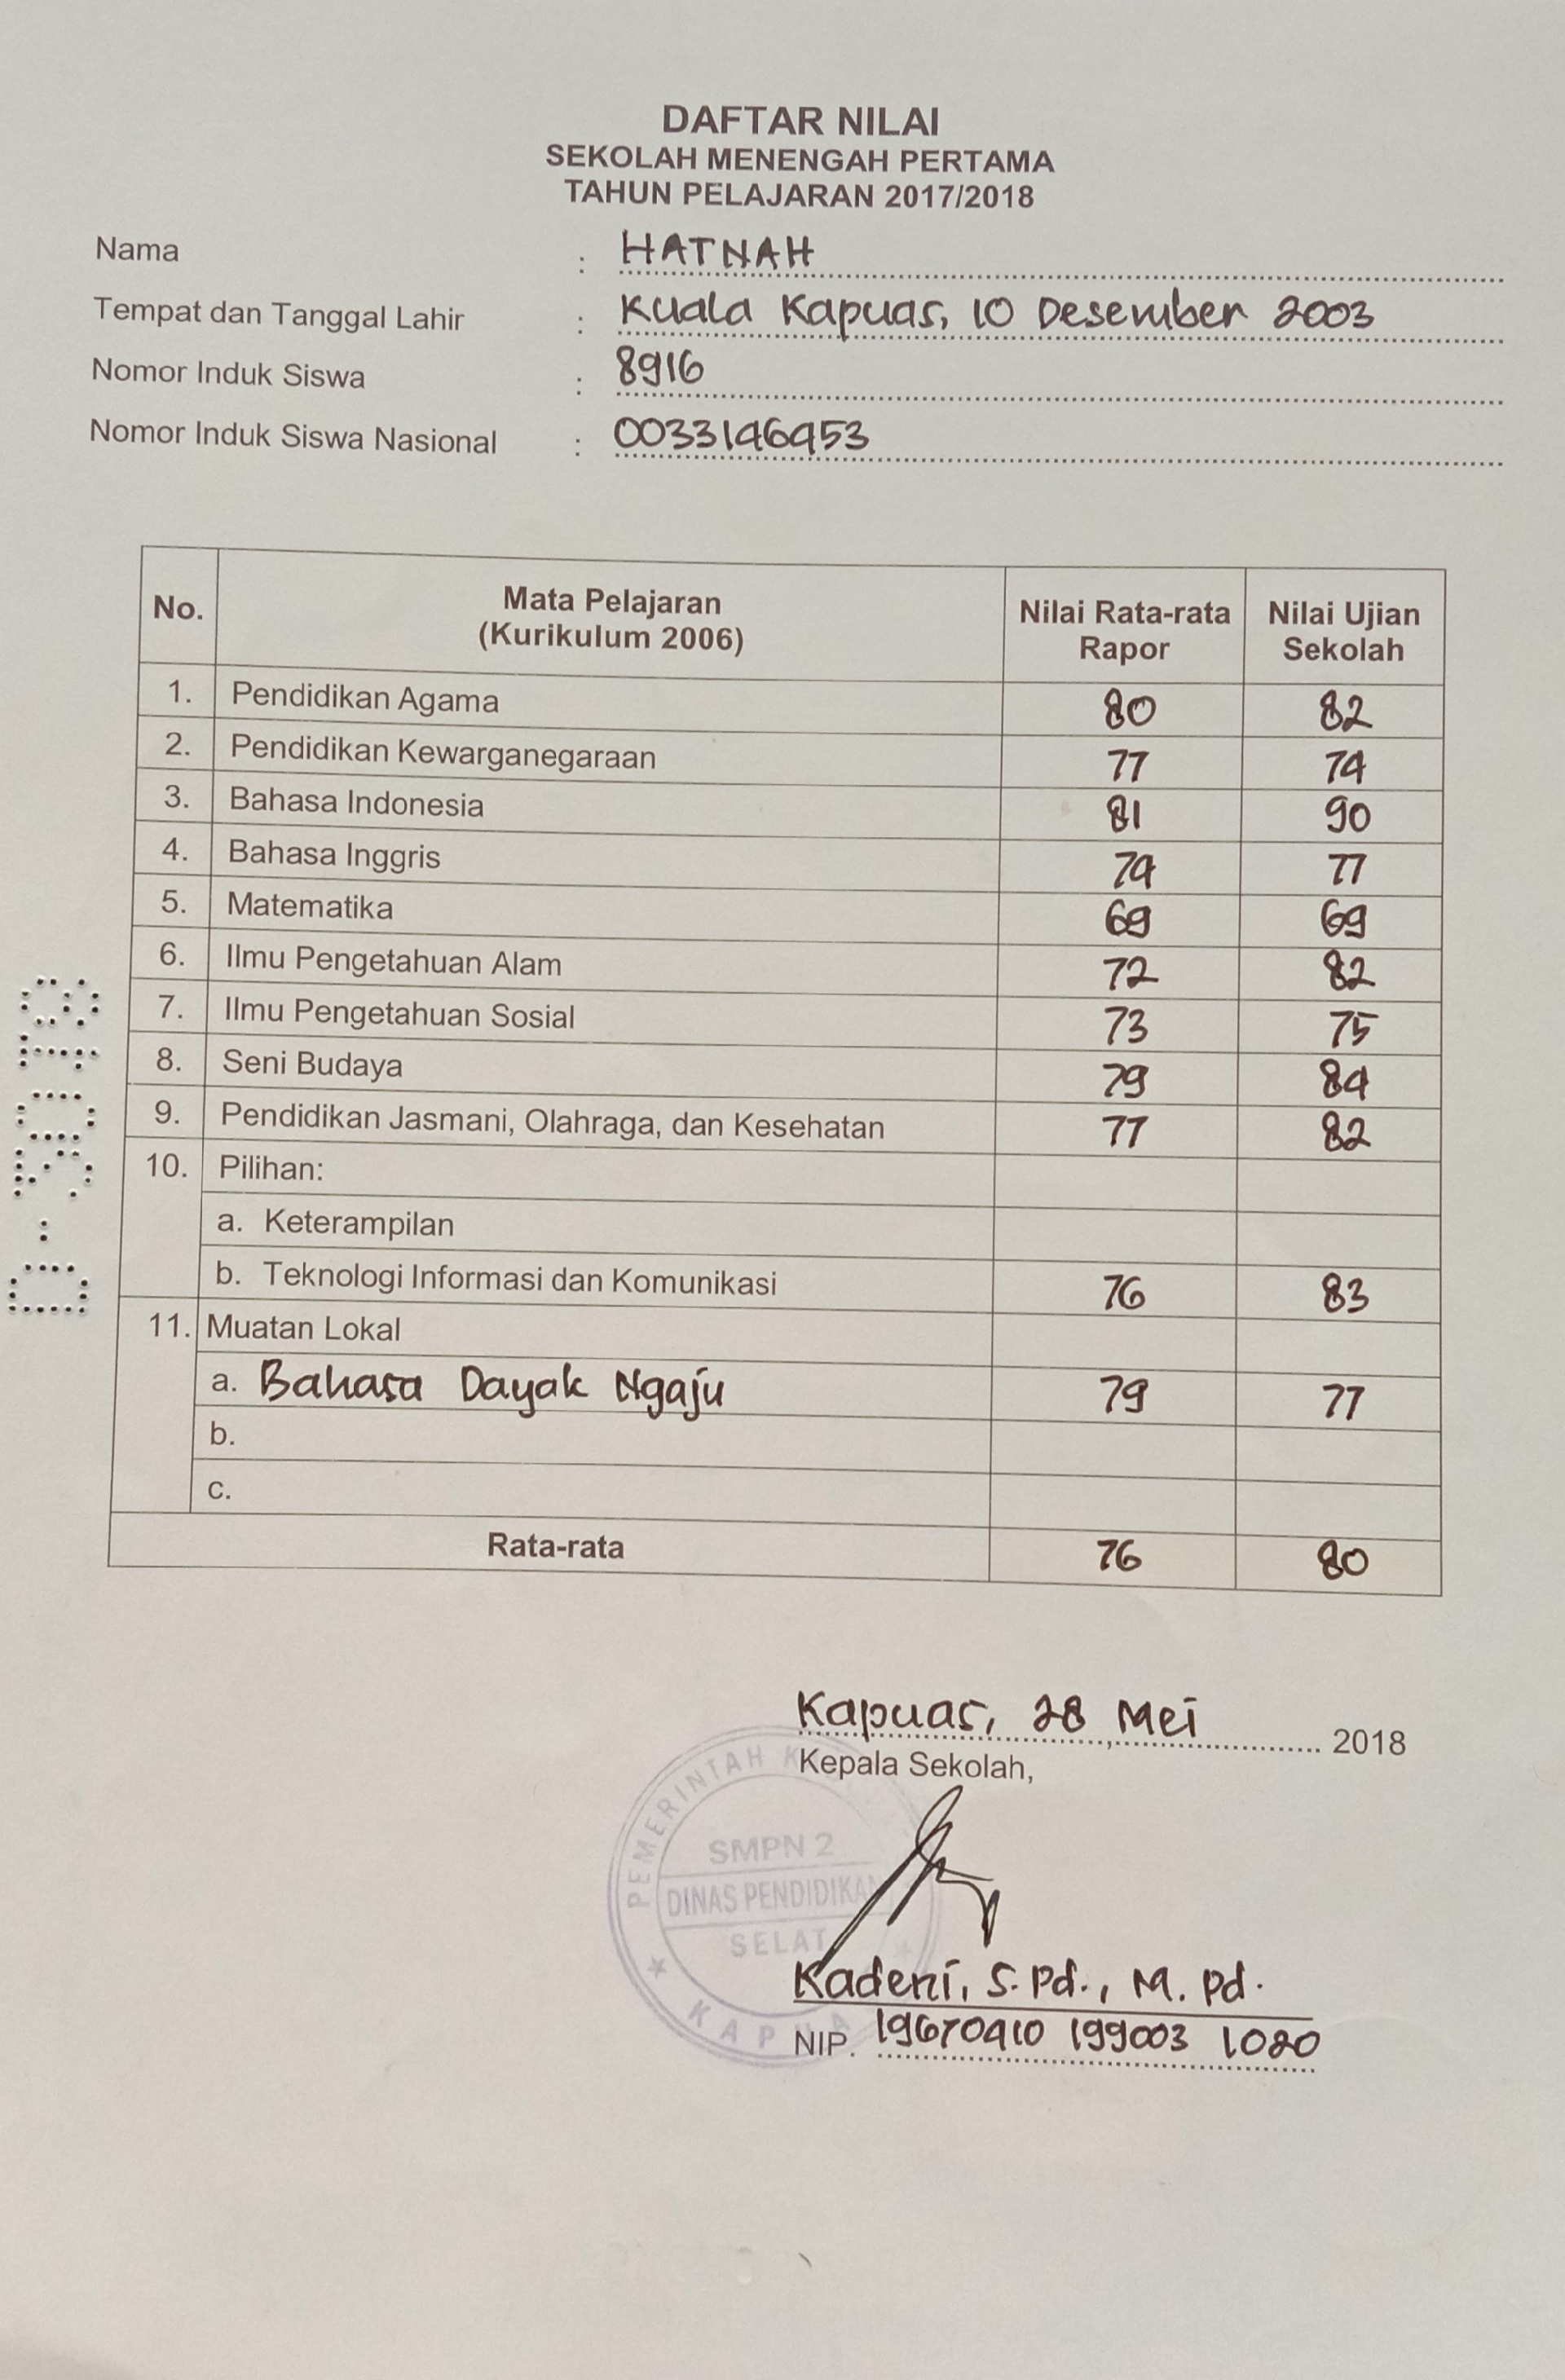 DAFTAR NILAI
SEKOLAH MENENGAH PERTAMA
TAHUN PELAJARAN 2017/2018
Nama : HATNAH
Tempat dan Tanggal Lahir : Kuala Kapuas, 10 Desember 2003
Nomor Induk Siswa : 8916
Nomor Induk Siswa Nasional : 0033146953
No. Mata Pelajaran (Kurikulum 2006) Nilai Rata-rata Rapor Nilai Ujian Sekolah
1. Pendidikan Agama 80 82
2. Pendidikan Kewarganegaraan 77 74
3. Bahasa Indonesia 81 90
4. Bahasa Inggris 74 77
5. Matematika 69 69
6. Ilmu Pengetahuan Alam 72 82
7. Ilmu Pengetahuan Sosial 73 75
8. Seni Budaya 79 84
9. Pendidikan Jasmani, Olahraga, dan Kesehatan 77 82
10. Pilihan:
a. Keterampilan
b. Teknologi Informasi dan Komunikasi 76 83
11. Muatan Lokal
a. Bahasa Dayak Ngaju 79 77
b.
c.
Rata-rata 76 80
Kapuas, 28 Mei 2018
Kepala Sekolah,
PEMERINTAH
SMPN 2
DINAS PENDIDIKAN
SELAT
KAPUA
Kadeni, S.Pd., M.Pd.
NIP. 19670410 199003 1020